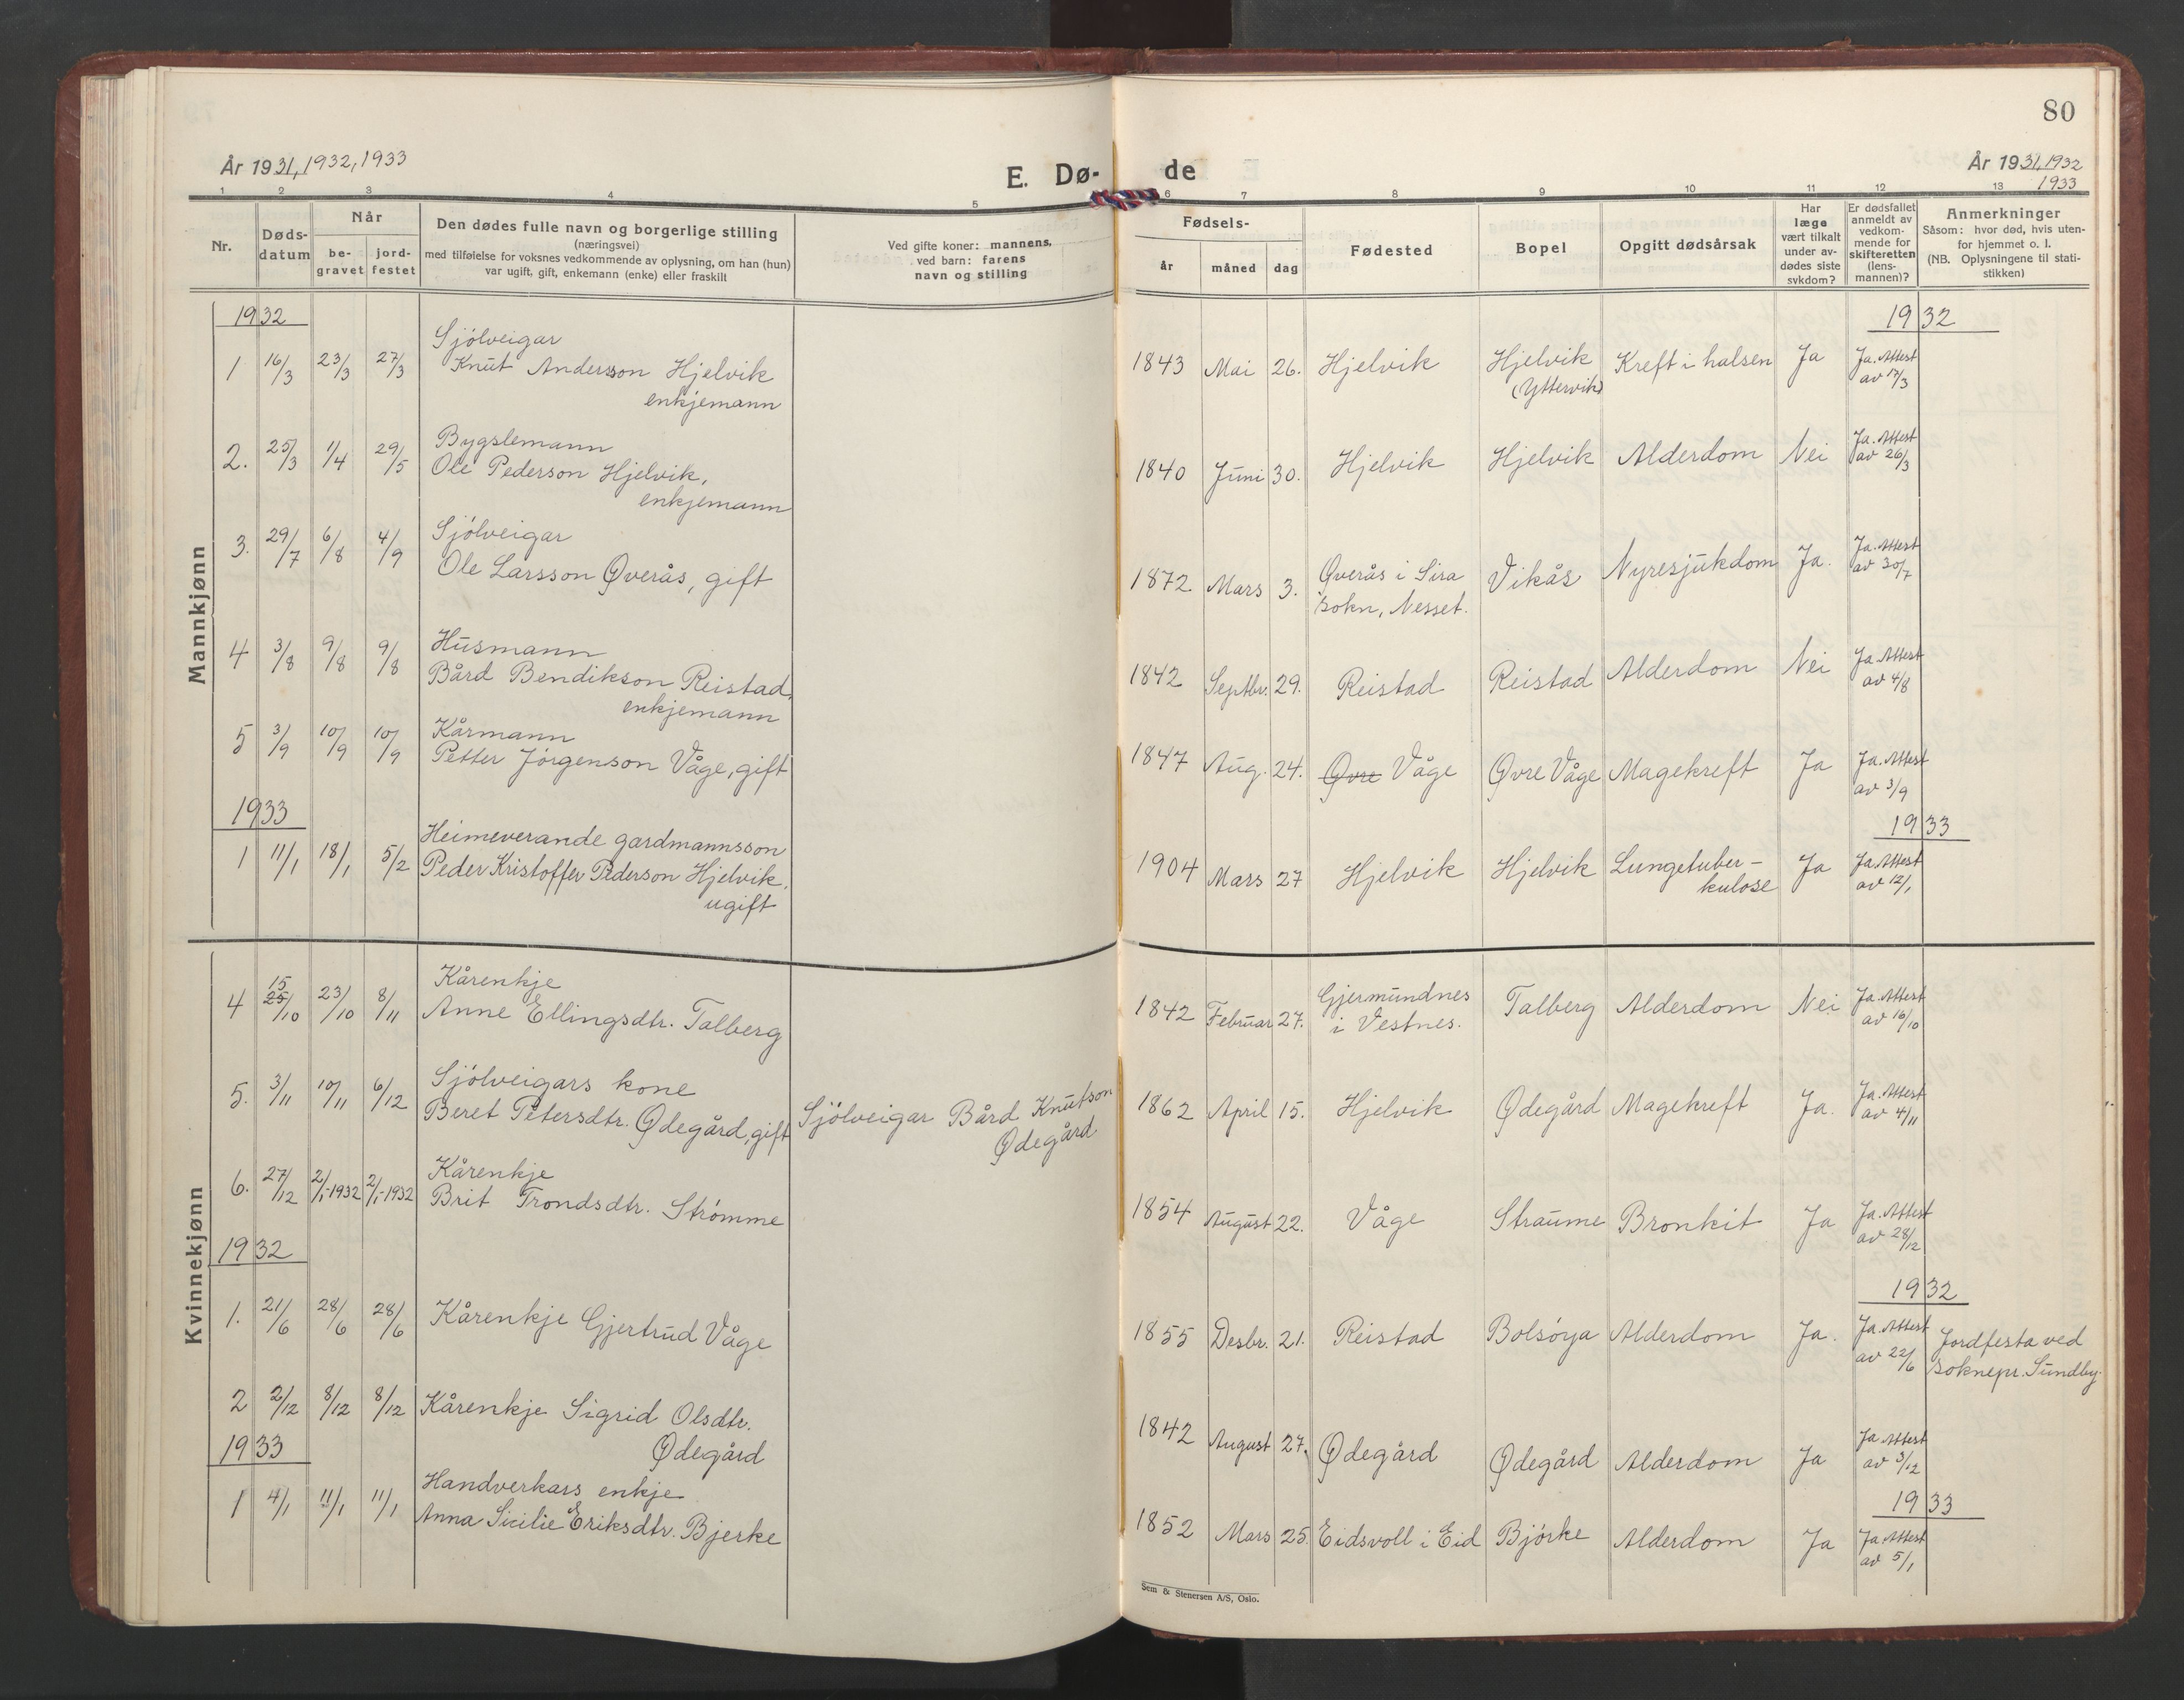 80
År 1931, 1932, 1933
E. Dø-
de
År 1931, 1932
1933
1 2 3 4 5 6 7 8 9 10 11 12 13
Nr.
Døds-
datum
Når
be-
gravet
jord-
festet
Den dødes fulle navn og borgerlige stilling
(næringsvei)
med tilføielse for voksnes vedkommende av oplysning, om han (hun)
var ugift, gift, enkemann (enke) eller fraskilt
Ved gifte koner: mannens,
ved barn: farens
navn og stilling
Fødsels-
år
måned
dag
Fødested
Bopel
Opgitt dødsårsak
Har
læge
vært tilkalt
under av-
dødes siste
sykdom?
Er dødsfallet
anmeldt av
vedkom-
mende for
skifteretten
(lens-
mannen)?
Anmerkninger
Såsom: hvor død, hvis uten-
for hjemmet o. l.
(NB. Oplysningene til stati-
stikken)
Mannkjønn
1932
1932
Sjölveigar
1 16/3 23/3 27/3 Knut Andersson Hjelvik 1843 Mai 26. Hjelvik Hjelvik Kreft i halsen Ja Ja. Attest
enkjemann (Yttervik) av 17/3
Bygslemann
2. 25/3 1/4 29/5 Ole Pederson Hjelvik, 1840 Juni 30. Hjelvik Hjelvik Alderdom Nei Ja. Attest
enkjemann av 26/3
Sjölveigar
3. 29/7 6/8 4/9 Ole Larsson Øverås, gift 1872. Mars 3. Øverås i Sira Vikås Nyresjukdom Ja. Ja. Attest
sokn, Nesset. av 30/7
Husmann
4 3/8 9/8 9/8 Bård Bendikson Reistad, 1842 Septbr. 29. Reistad Reistad Alderdom Nei Ja. Attest
enkjemann av 4/8
Kårmann
5 3/9 10/9 10/9 Petter Jörgenson Våge, gift 1847 Aug. 24. Øvre Våge Øvre Våge Magekreft Ja Ja. Attest
av 3/9
1933
1933
Heimeverande gardmannsson
1 11/1 18/1 5/2 Peder Kristoffer Pederson Hjelvik, 1904 Mars 27 Hjelvik Hjelvik Lungetuber- Ja Ja. Attest
ugift kulose av 12/1
Kvinnekjønn
Kårenkje
15
4 25/10 23/10 8/11 Anne Ellingsdtr. Talberg 1842 Februar 27. Gjermundnes Talberg Alderdom Nei Ja. Attest
i Vestnes. av 16/10
Sjölveigars kone
5. 3/11 10/11 6/12 Beret Petersdtr. Ødegård, gift Sjölveigar Bård Knutson 1862 April 15. Hjelvik Ødegård Magekreft Ja. Ja. Attest
Ødegård av 4/11
Kårenkje
6. 27/12 2/1-1932 2/1-1932 Brit Trondsdtr. Strömme 1854 August 22. Våge Straume Bronkit Ja Ja. Attest
av 28/12
1932
1932
1. 21/6 28/6 28/6 Kårenkje Gjertrud Våge 1855 Desbr. 21. Reistad Bolsöya Alderdom Ja. Ja. Attest Jordfesta ved
av 22/6 soknepr. Sundby.
2 2/12 8/12 8/12 Kårenkje Sigrid Olsdtr. 1842 August 27. Ødegård Ødegård Alderdom Ja Ja. Attest
Ødegård av 3/12
1933
1933
Handverkars enkje
1 4/1 11/1 11/1 Anna Sicilie Eriksdtr. Bjerke 1852 Mars 25. Eidsvoll i Eid Björke Alderdom Ja Ja. Attest
av 5/1
Sem & Stenersen A/S, Oslo.